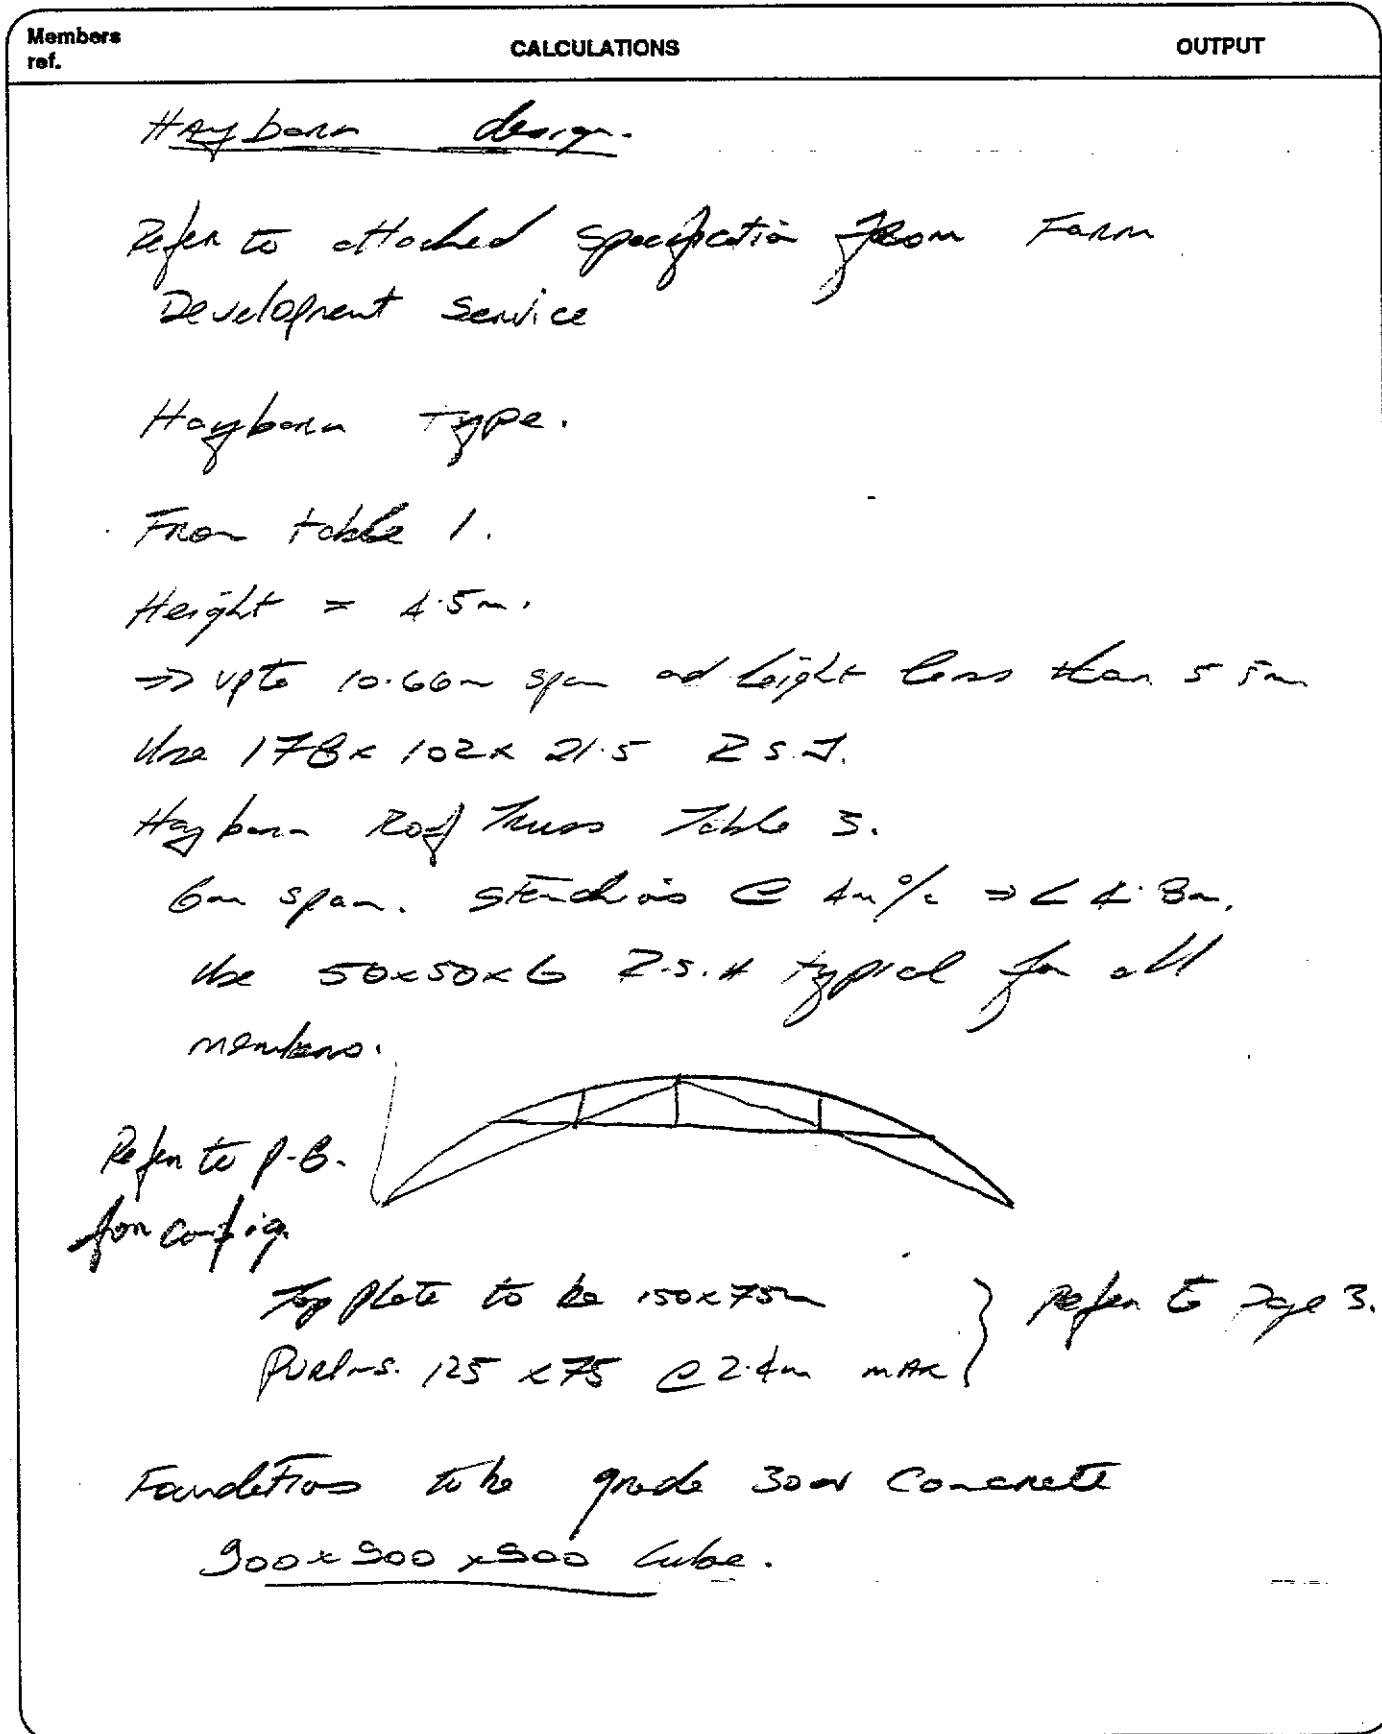 Members
ref.
CALCULATIONS
OUTPUT
Haybarn design.
Refer to attached specification from Farm
Development Service
Haybarn Type.
From table 1.
Height = 4.5m.
=> upto 10.66m span and height less than 5.5m
Use 178 x 102 x 21.5 R.S.J.
Haybarn Roof Truss Table 3.
6m span. stanchions @ 4m o/c => < 4.8m.
Use 50x50x6 R.S.A typical for all
members.
Refer to p.8.
for config.
Top plate to be 150x75m
Purlins. 125 x 75 @ 2.4m MAX } Refer to Page 3.
Foundations to be grade 30 Concrete
900 x 900 x 900 Cube.